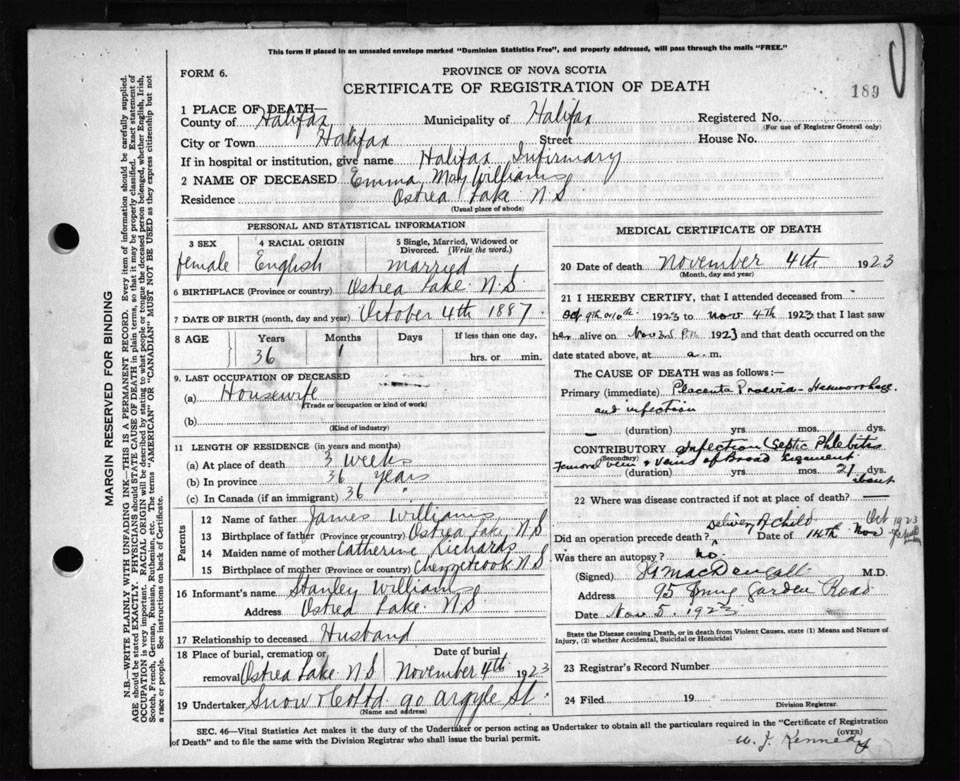 This form if placed in an unsealed envelope marked "Dominion Statistics Free", and properly addressed, will pass through the mails "FREE."
FORM 6.
PROVINCE OF NOVA SCOTIA
CERTIFICATE OF REGISTRATION OF DEATH
189
1 PLACE OF DEATH—
County of Halifax Municipality of Halifax Registered No.
(For use of Registrar General only)
City or Town Halifax Street House No.
If in hospital or institution, give name Halifax Infirmary
2 NAME OF DECEASED Emma May Williams
Residence Ostrea Lake N S
(Usual place of abode)
PERSONAL AND STATISTICAL INFORMATION
3 SEX 4 RACIAL ORIGIN 5 Single, Married, Widowed or Divorced. (Write the word.)
female English married
6 BIRTHPLACE (Province or country) Ostrea Lake N.S.
7 DATE OF BIRTH (month, day and year) October 4th 1887.
8 AGE Years Months Days If less than one day,
36 1 hrs. or min.
9. LAST OCCUPATION OF DECEASED
(a) Housewife
(Trade or occupation or kind of work)
(b)
(Kind of industry)
11 LENGTH OF RESIDENCE (in years and months)
(a) At place of death 3 weeks
(b) In province 36 years
(c) In Canada (if an immigrant) 36 "
Parents
12 Name of father James Williams
13 Birthplace of father (Province or country) Ostrea Lake, N S
14 Maiden name of mother Catherine Richards
15 Birthplace of mother (Province or country) Chezzetcook N S
16 Informant's name Stanley Williams
Address Ostrea Lake N S
17 Relationship to deceased Husband
18 Place of burial, cremation or removal Ostrea Lake N S Date of burial November 4th 1923
19 Undertaker Snow & Co Ltd 90 Argyle St
(Name and address)
MEDICAL CERTIFICATE OF DEATH
20 Date of death November 4th 1923
(Month, day and year)
21 I HEREBY CERTIFY, that I attended deceased from
Oct 9th or 10th 1923 to Nov 4th 1923 that I last saw
her alive on Nov 3rd P.M. 1923 and that death occurred on the
date stated above, at a. m.
The CAUSE OF DEATH was as follows:—
Primary (immediate) Placenta Praevia - Hemorrhage.
and infection
(duration) yrs. mos. dys.
CONTRIBUTORY Infection (Septic Phlebitis
(Secondary)
Femoral vein & Veins of Broad Ligament
(duration) yrs. mos. 21 dys.
about
22 Where was disease contracted if not at place of death?
Delivery of Child Oct 1923
Did an operation precede death? Date of 14th Nov
Was there an autopsy? no.
(Signed) MacDougall M.D.
Address 95 Spring Garden Road
Date Nov 5. 1923
State the Disease causing Death, or in death from Violent Causes, state (1) Means and Nature of Injury, (2) whether Accidental, Suicidal or Homicidal
23 Registrar's Record Number
24 Filed 19
Division Registrar.
SEC. 46—Vital Statistics Act makes it the duty of the Undertaker or person acting as Undertaker to obtain all the particulars required in the "Certificate of Registration
of Death" and to file the same with the Division Registrar who shall issue the burial permit.
(OVER)
W. J. Kennedy
MARGIN RESERVED FOR BINDING
N.B.—WRITE PLAINLY WITH UNFADING INK—THIS IS A PERMANENT RECORD. Every item of information should be carefully supplied.
AGE should be stated EXACTLY. PHYSICIANS should STATE CAUSE OF DEATH in plain terms, so that it may be properly classified. Exact statement of
OCCUPATION is very important. RACIAL ORIGIN will be described by stating to what people or tongue the deceased person belonged, whether English, Irish,
Scotch, French, German, Russian, Ruthenian, etc. The terms "AMERICAN" OR "CANADIAN" MUST NOT BE USED as they express citizenship but not
a race or people. See instructions on back of Certificate.